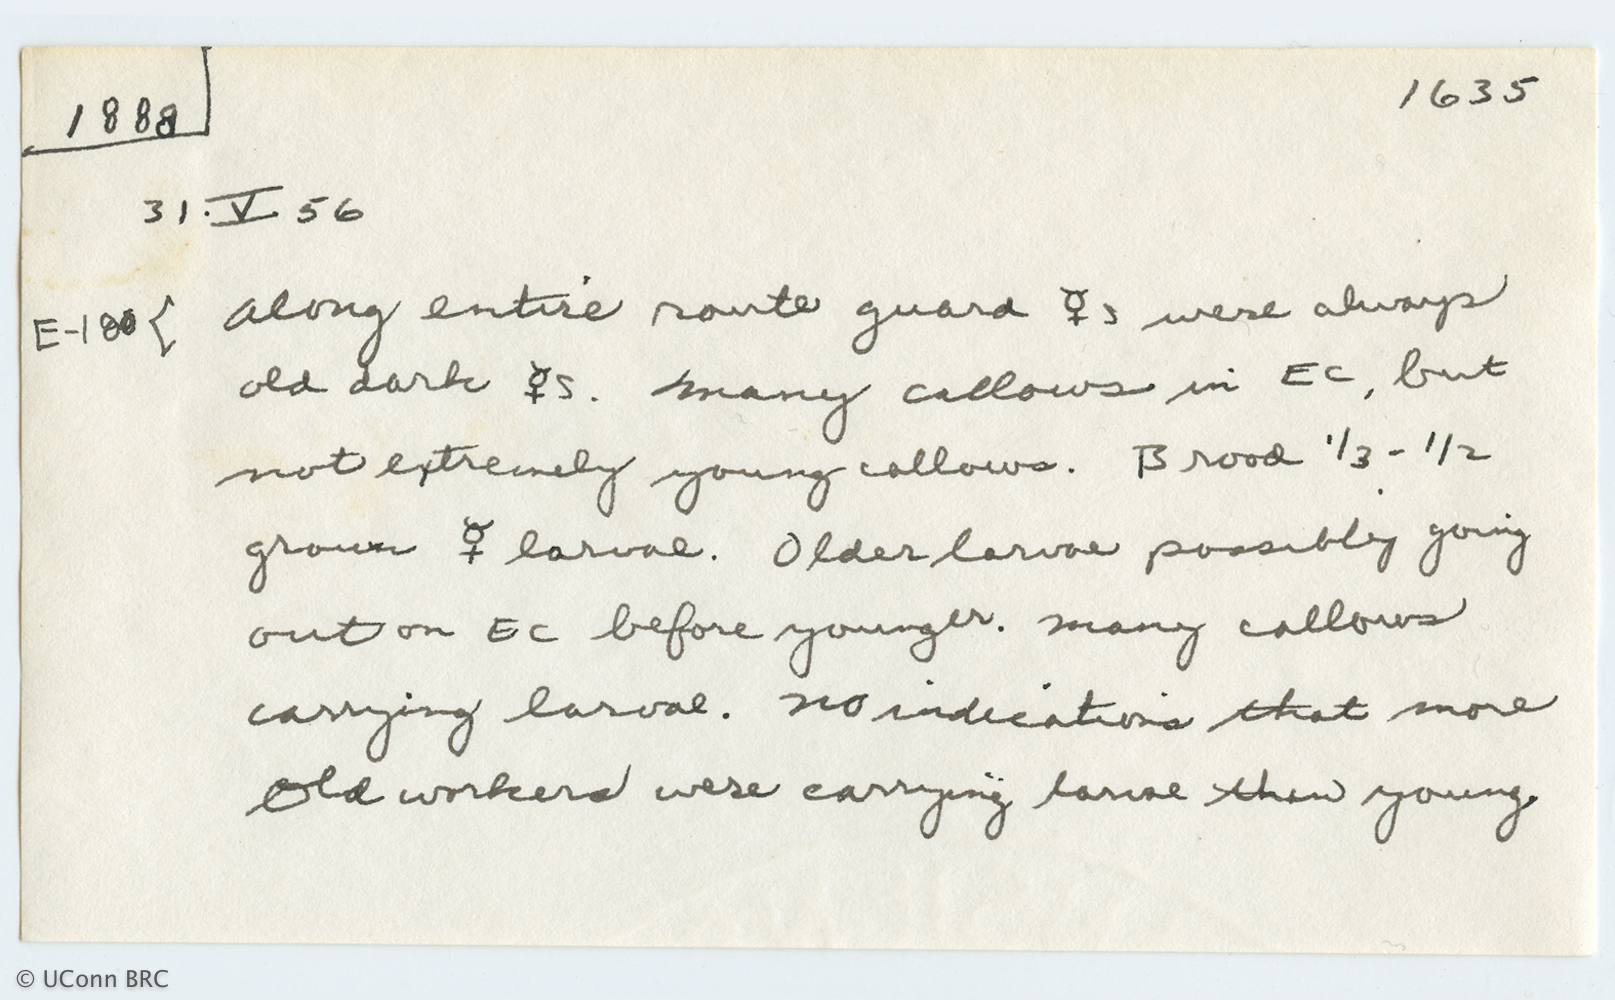 1888
1635
31.V.56
E-180 { Along entire route guard ☿s were always
old dark ☿s. Many callows in EC, but
not extremely young callows. Brood 1/3 - 1/2
grown ☿ larvae. Older larvae possibly going
out on EC before younger. Many callows
carrying larvae. No indications that more
old workers were carrying larvae than young.
© UConn BRC